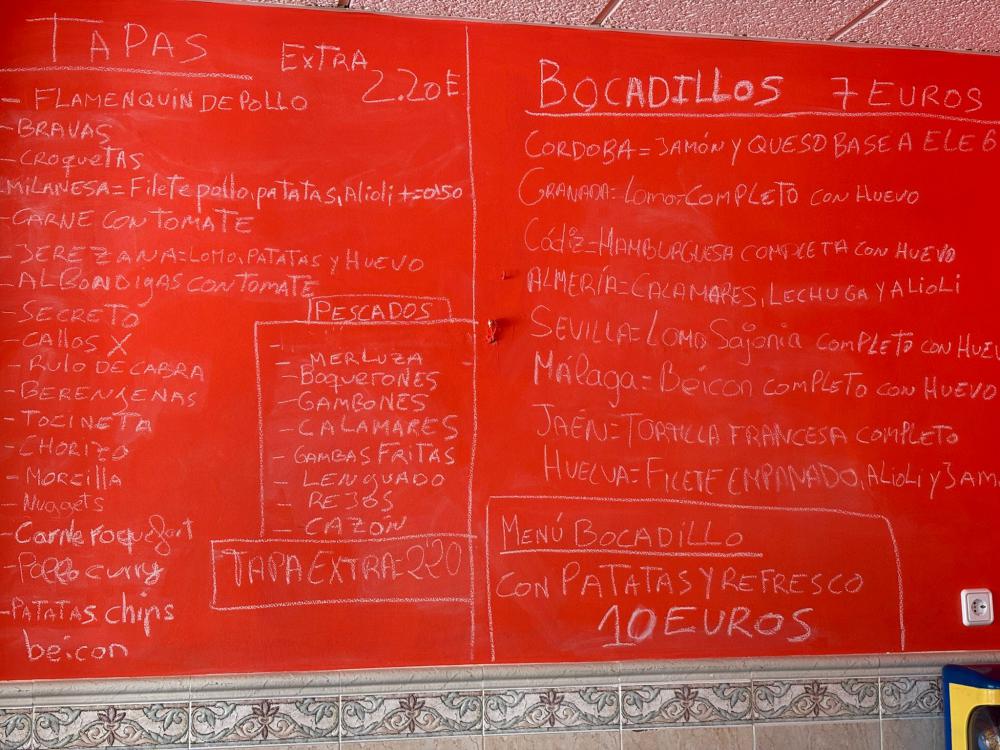 TAPAS
EXTRA
2.20E
- FLAMENQUIN DE POLLO
- BRAVAS
- CROQUETAS
MILANESA = Filete pollo, patatas, Alioli += 0'50
- CARNE CON TOMATE
- JEREZANA = LOMO, PATATAS Y HUEVO
- ALBONDIGAS CON TOMATE
- SECRETO
- CALLOS X
- RULO DE CABRA
- BERENJENAS
- TOCINETA
- CHORIZO
- MORZILLA
- Nuggets
- Carne roquefort
- Pollo curry
- PATATAS chips
beicon
PESCADOS
-
- MERLUZA
- BOQUERONES
- GAMBONES
- CALAMARES
- GAMBAS FRITAS
- LENGUADO
- REJOS
- CAZÓN
TAPA EXTRA = 2'20
BOCADILLOS 7 EUROS
CORDOBA = JAMÓN Y QUESO BASE A
GRANADA = LOMO COMPLETO CON HUEVO
Cádiz = HAMBURGUESA COMPLETA CON HUEVO
ALMERÍA = CALAMARES, LECHUGA Y ALIOLI
SEVILLA = LOMO Sajonia COMPLETO CON HUEV
MÁlaga = Beicon COMPLETO CON HUEVO
JAÉN = TORTILLA FRANCESA COMPLETO
HUELVA = FILETE EMPANADO, ALIOLI Y JAM
MENÚ BOCADILLO
CON PATATAS Y REFRESCO
10 EUROS